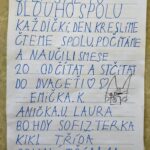 DLOUHO SPOLU
KAŽDIČKÍ DEN KRESLÍME
ČTEME SPOLU, POČÍTÁME
A NAUČILI SMESE
20 ODČÍTAT A SČÍTAT
DO DVACETI
EMIČKA. K
ANIČKA. U LAURA
BOHDY SOFI Z. TERKA
KIKI TŘÍDA